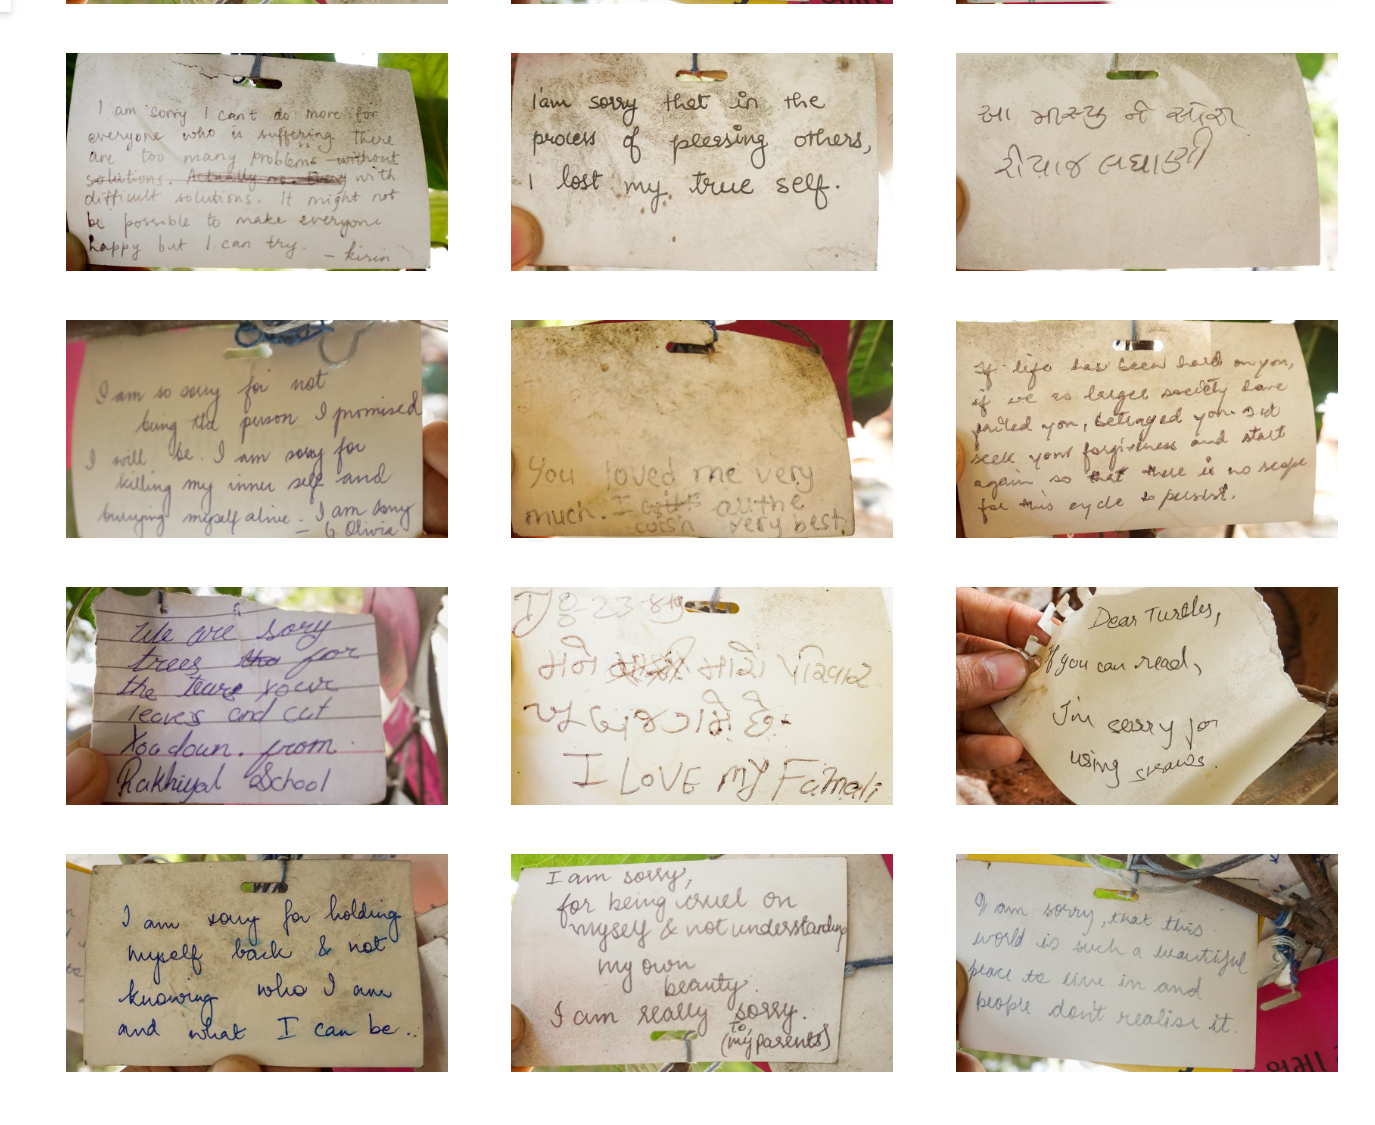 I am sorry I can't do more for
everyone who is suffering there
are too many problems without
solutions. Actually no. Every with
difficult solutions. It might not
be possible to make everyone
happy but I can try.
- kirin
I am sorry that in the
process of pleasing others,
I lost my true self.
આ
રીયાજ લઘાણી
I am so sorry for not
being the person I promised
I will be. I am sorry for
killing my inner self and
burying myself alive - I am sorry
G. Olivia
You loved me very
much. I
very best.
If life has been hard on you,
if we as larger society have
failed you, betrayed you
seek your forgiveness and start
again so that there is no scope
for this cycle to persist.
We are sory
trees tha for
the teare your
leaves and cut
You down. from
Rakhiyal School
8-23
મને મારો પરિવાર
ખુબ જ ગમે છે.
I LOVE MY Famali
Dear Turtles,
If you can read,
I'm sorry for
using straws.
I am sorry for holding
myself back & not
knowing who I am
and what I can be..
I am sorry,
for being cruel on
myself & not understanding
my own
beauty.
I am really sorry.
To,
(my parents)
I am sorry, that this
world is such a beautiful
place to live in and
people don't realise it.